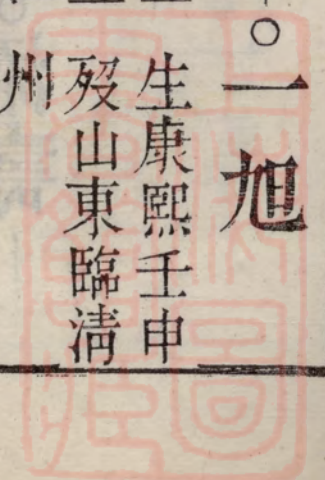 ○一旭
生康熙壬申
歿山東臨淸
州